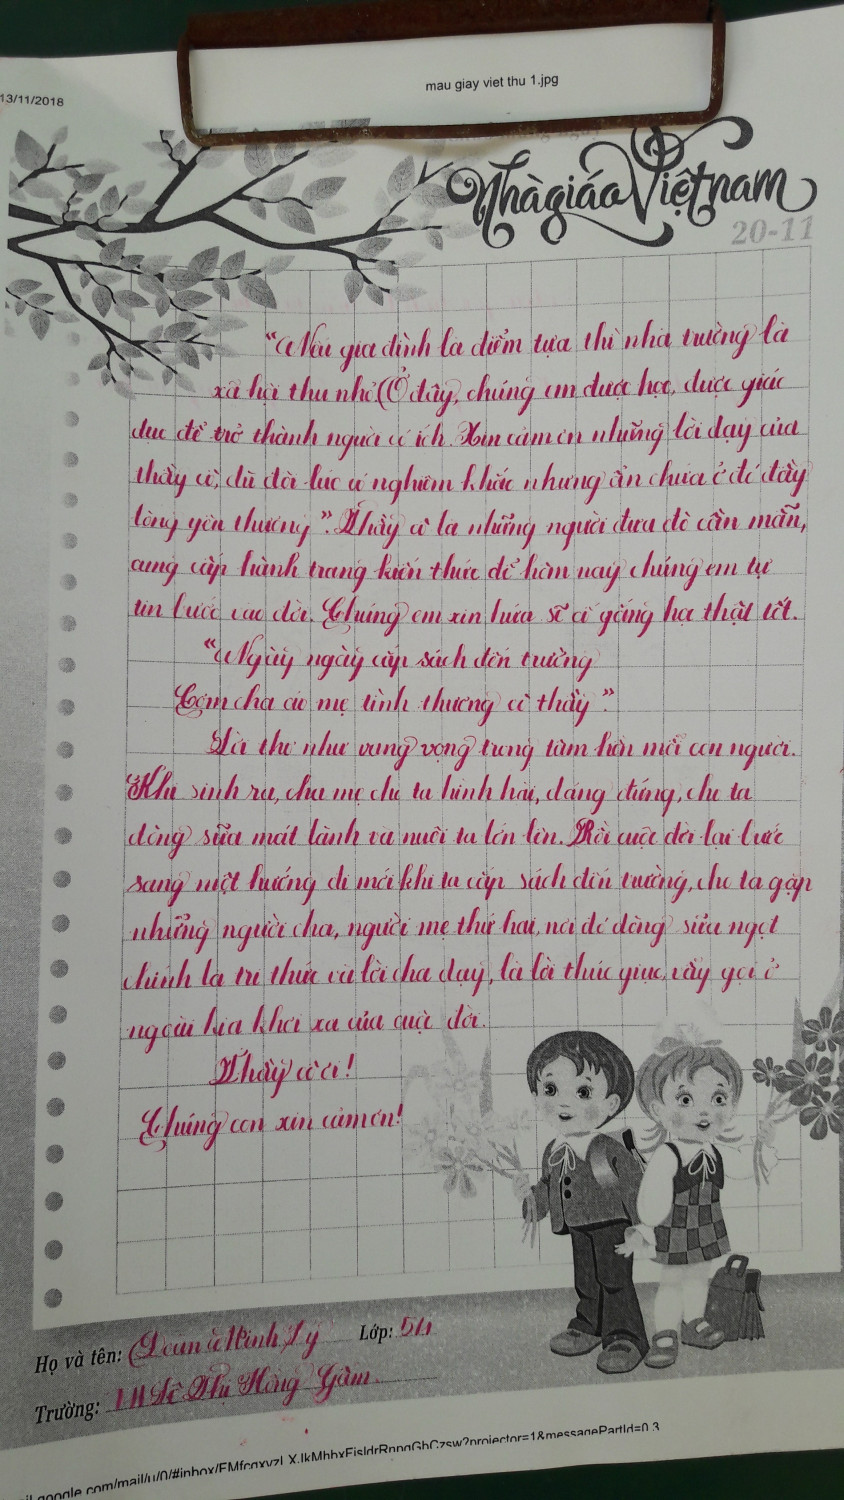 13/11/2018
mau giay viet thu 1.jpg
Nhà giáo Việt nam
20-11
"Nếu gia đình là điểm tựa thì nhà trường là
xã hội thu nhỏ. Ở đây, chúng em được học, được giáo
dục để trở thành người có ích. Xin cảm ơn những lời dạy của
thầy cô, dù đôi lúc có nghiêm khắc nhưng ẩn chứa ở đó đầy
lòng yêu thương". Thầy cô là những người đưa đò cần mẫn,
cung cấp hành trang kiến thức để hôm nay chúng em tự
tin bước vào đời. Chúng em xin hứa sẽ cố gắng học thật tốt.
"Ngày ngày cắp sách đến trường
Cơm cha áo mẹ tình thương cô thầy".
Lời thơ như vang vọng trong tâm hồn mỗi con người.
Khi sinh ra, cha mẹ cho ta hình hài, dáng đứng, cho ta
dòng sữa mát lành và nuôi ta lớn lên. Rồi cuộc đời lại bước
sang một hướng đi mới khi ta cắp sách đến trường, cho ta gặp
những người cha, người mẹ thứ hai, nơi đó dòng sữa ngọt
chính là tri thức và lời cha dạy, là lời thúc giục, vẫy gọi ở
ngoài kia khơi xa của cuộc đời.
Thầy cô ơi!
Chúng con xin cảm ơn!
Họ và tên: Đoàn Minh Lý Lớp: 5/4
Trường: TH Lê Thị Hồng Gấm